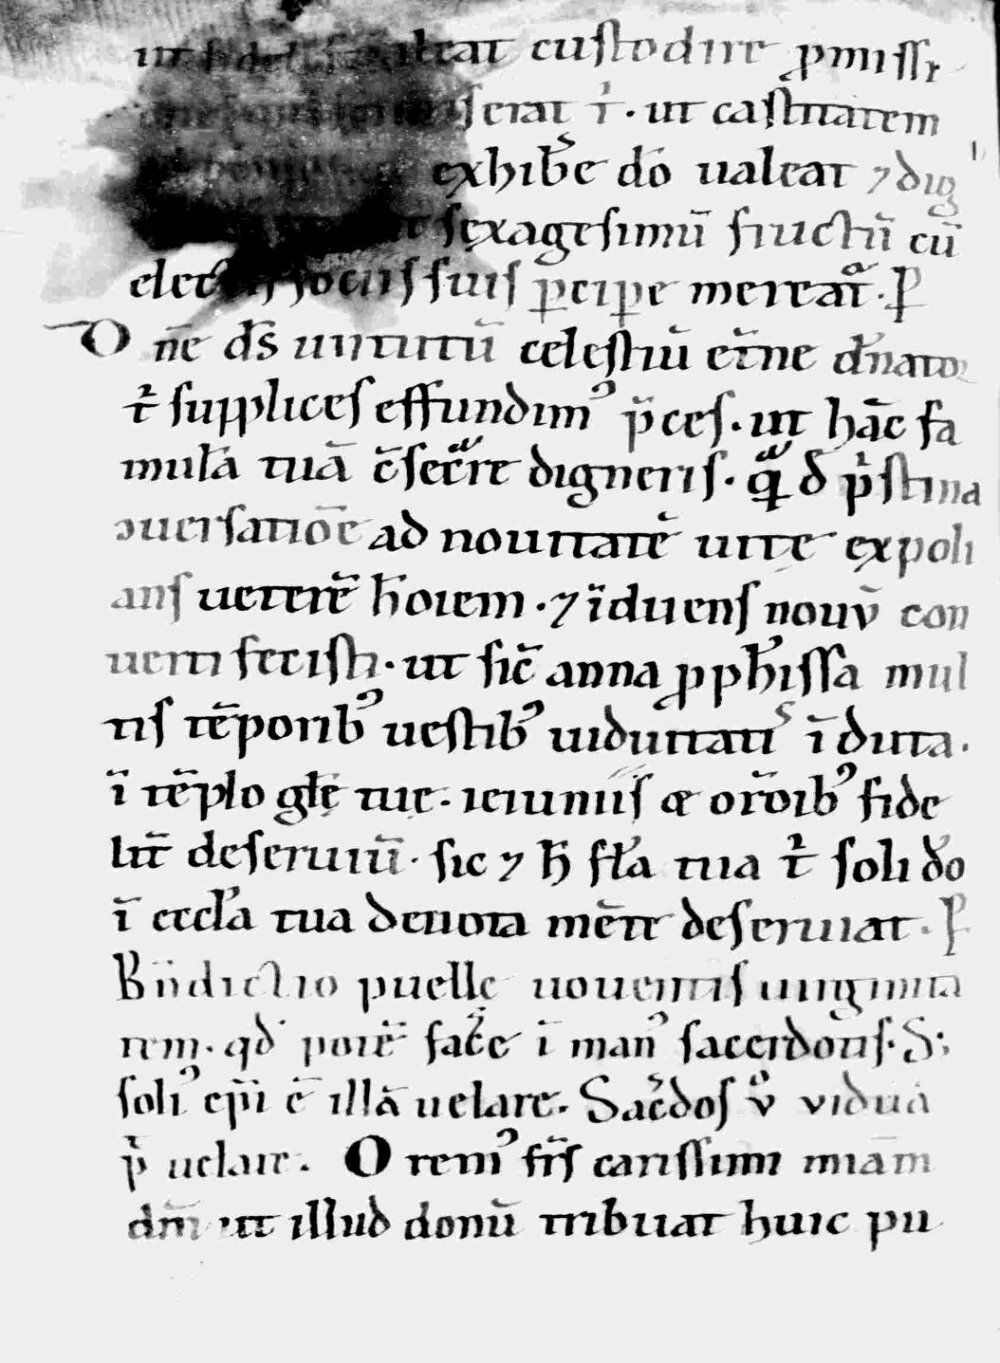 ut fidelis ualeat custodire ꝓmissi
serat t̉ · ut castitatem
exhibe᷒ do᷒ ualeat ⁊ dig
sęxagesimū fructū cū
elect sociis suis p̱cipe mereat᷒ · P̱
One dn̄s uirtutū celestiū et̄ne d᷒nator
t̉ supplices effundimꝰ p̄ces · ut hāc fa
mulā tuā c̄sec᷒re digneris · q̄ d᷒ p̉stina
ↄuersatiōe ad nouitatē uitę expoli
ans ueterē hōiem · ⁊ īduens nouū con
uem fecisti · ut sic̄ anna ꝓph̉issa mul
tis tēporibꝰ uestibꝰ uiduitatis īduta ·
ī tēplo gl̄ę tuę · ieiuniis æ or̄oibꝰ fide
lit̄ deseruiū · sic ⁊ ħ fl̉a tua t̉ soli d᷒o
ī eccl̉a tua deuota mēte deseruiat · P̱
Bn̄dictio puellę uouentis uirginita
tem · qd᷒ potē fac̉e ī manꝰ sacerdotis · S;
soliꝰ ep̄i ē illā uelare · Sac̉dos v᷒ viduā
p̉ uelare · Oremꝰ fr̄s carissimi miām
dn̄i ut illud donū tribuat huic pu